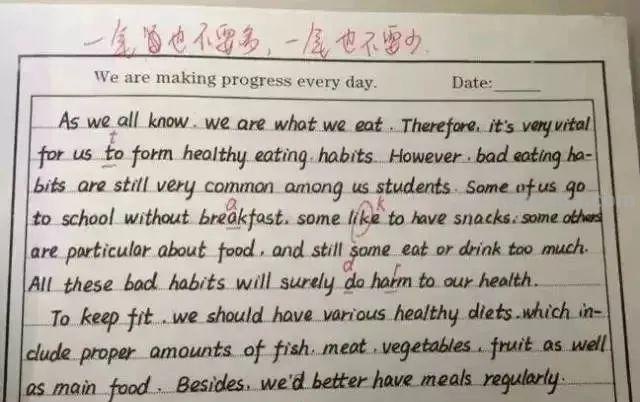 一尾也不要多，一尾也不要少.
We are making progress every day. Date:
As we all know. we are what we eat. Therefore, it's very vital
t
for us to form healthy eating habits. However, bad eating ha-
bits are still very common among us students. Some of us go
a k
to school without breakfast, some like to have snacks, some others
are particular about food, and still some eat or drink too much.
d r
All these bad habits will surely do harm to our health.
To keep fit, we should have various healthy diets, which in-
clude proper amounts of fish, meat, vegetables, fruit as well
as main food. Besides, we'd better have meals regularly.